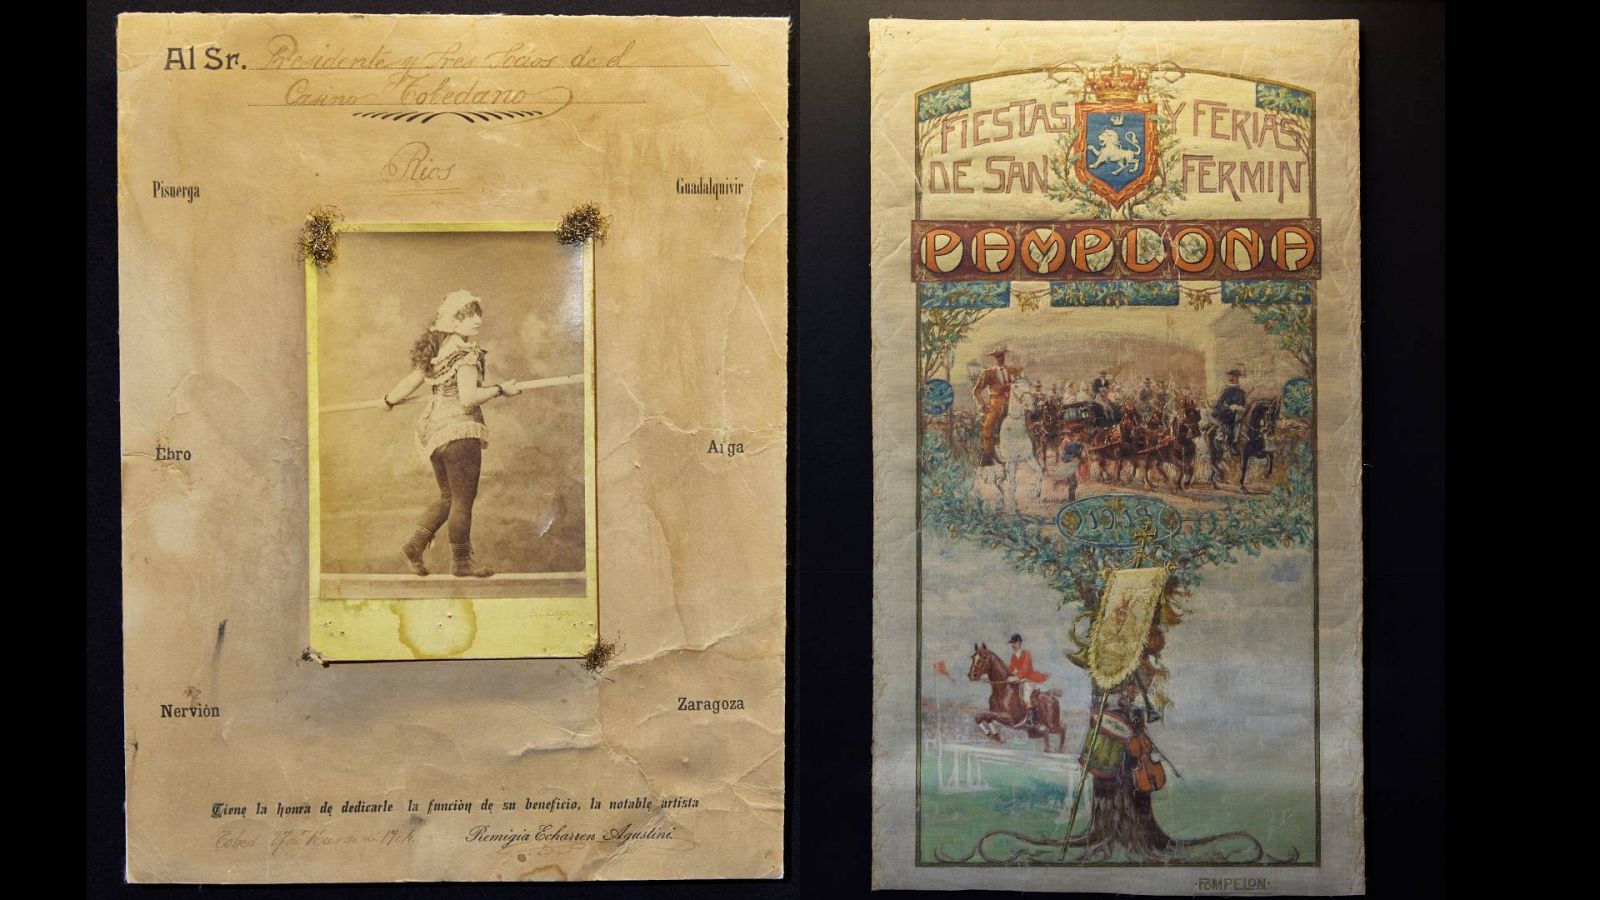 Al Sr. Presidente y Sres Socios de el
Casino Toledano
Rios
Pisuerga
Guadalquivir
Ebro
Arga
Nervión
Zaragoza
Tiene la honra de dedicarle la función de su beneficio, la notable artista
27 de Marzo de 1904.
Remigia Echarren Agustini.
FIESTAS Y FERIAS
DE SAN FERMIN
PAMPLONA
1913
·PAMPELON·